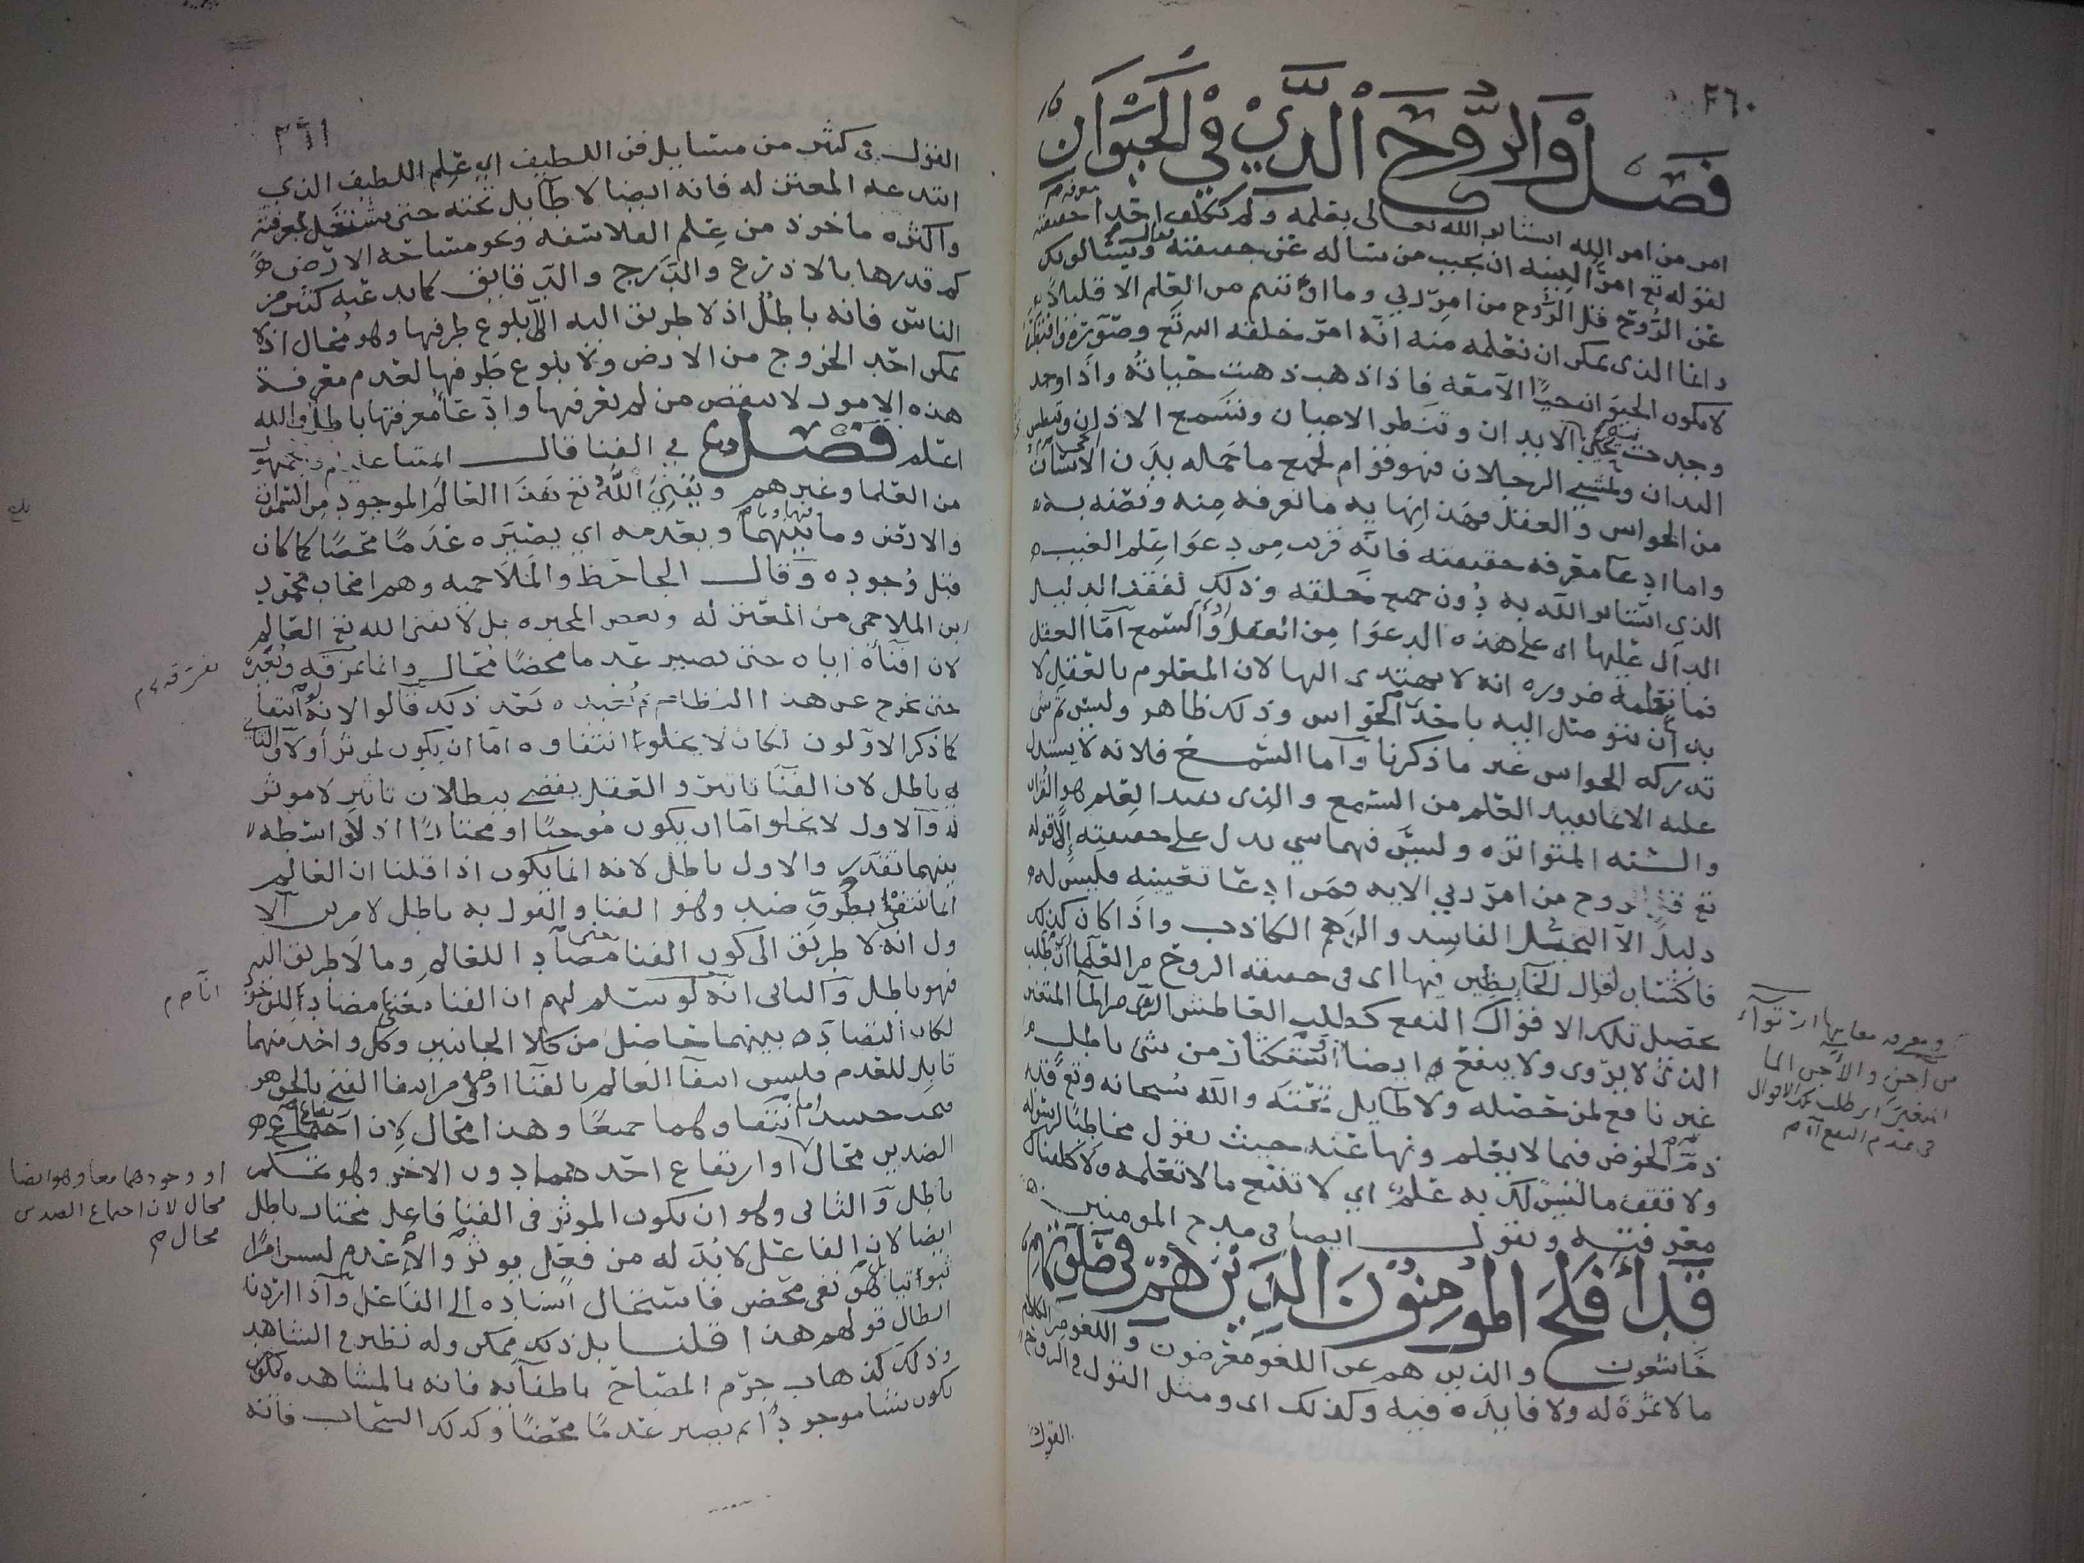 ٢٦٠
فصل والروح الذي في الحيوان
امر من امر الله استاثر الله تعالى بعلمه ولم يكلف احدا حقيقته
لقوله تع امرًا لنبيه ان يجيب من سأله عن حقيقته ويسالونك
عن الروح قل الروح من امر ربي وما اوتيتم من العلم الا قليلا
وانما الذي يمكن ان نعلمه منه انه امر خلقه الله تع وصوره
لا يكون الحيوان حيًا الا معه فاذا ذهب ذهبت حياته واذا وجد
وجدت فتحيى الابدان وتنظر الاعيان وتسمع الاذان وتبطش
اليدان وتمشي الرجلان فهو قوام لجميع ما حمله بدن الانسان
من الحواس والعقل فهذا نهاية ما نعرفه منه ونصفه به
واما ادعا معرفة حقيقته فانه قريب من دعوا علم الغيب
الذي استاثر الله به دون جميع خلقه وذلك لفقد الدليل
الدال عليها اي على هذه الدعوا من العقل والسمع اما العقل
فما نعلمه ضرورة انه لا يهتدى اليها لان المعلوم بالعقل لا
بد ان يتوصل اليه باحد الحواس وذلك ظاهر وليس ثم شي
تدركه الحواس غير ما ذكرنا واما السمع فلانه لا يستدل
عليه الا بما يفيد العلم من السمع والذي يفيد العلم هو القران
والسنة المتواترة وليس فيهما شي يدل على حقيقته إلا قوله
تع قل الروح من امر ربي الاية فمن ادعا تعيينه فليس له
دليل الا التخيل الفاسد والوهم الكاذب واذا كان كذلك
فاكتساب اقوال الخايضين فيها اي في حقيقة الروح من العلما
بحصل تلك الاقوال النفع كطلب العاطش الري من الما المتغير
الذي لا يروى ولا ينفع ايضا استكثار من شي باطل
غير نافع لمن حصله ولا طايل تحته والله سبحانه وتع قد
ذم الخوض فيما لا يعلم ونها عنه حيث يقول مخاطبا لرسوله
ولا تقف ما ليس لك به علم اي لا تتبع ما لا تعلمه ولا كلفناك
معرفته ويقول ايضا في مدح المومنين
قد أفلح المومنون الذين هم في صلوتهم
خاشعون والذين هم عن اللغو معرضون واللغو من الكلام
ما لا ثمرة له ولا فايدة فيه وكذلك اي ومثل القول في الروح
القول
من آجن والآجن الما
المتغير اي طلب تلك الاقوال
في عدم النفع
٢٦١
القول في كثير من مسايل فن اللطيف اي علم اللطيف الذي
ابتدعه المعتزله فانه ايضا لا طايل تحته حتى يشتغل بمعرفته
واكثره ماخوذ من علم الفلاسفة ونحو مساحة الارض
كم قدرها بالاذرع والدرج والدقايق كما يدعيه كثير من
الناس فانه باطل اذ لا طريق اليه الا بلوغ طرفها وهو محال اذ لا
يمكن احد الخروج من الارض ولا بلوغ طرفها لعدم معرفة
هذه الامور لا ينقص من لم يعرفها وادعا معرفتها باطل والله
اعلم فصل في الفنا قال ائمتنا عليهم وجمهور
من العلما وغيرهم ويفني الله تع هذا العالم الموجود من السموات
والارض وما بينهما ويعدمه اي يصيره عدمًا محضًا كما كان
قبل وجوده وقال الجاحظ والملاحمية وهم اصحاب محمود
ابن الملاحمي من المعتزلة وبعض المجبرة بل لا يفني الله تع العالم
لان افناه اياه حتى يصير عدما محضًا محال وانما يمزقه ويبدده
حتى يخرج عن هذا النظام ثم يعيده بعد ذلك قالوا لانه لو انتفا
كما ذكر الاولون لكان لا يخلو انتفاوه اما ان يكون لموثر أو لا والثاني
باطل لان الفنا تاثير والعقل يقضي ببطلان تاثير لا موثر
له والاول لا يخلوا اما ان يكون موجبًا او مختارًا اذ لا واسطة
بينهما تقدر والاول باطل لانه انما يكون اذا قلنا ان العالم
انما ينتفي بطرو ضد وهو الفنا والقول به باطل لامرين الا
ول انه لا طريق الى كون الفنا مضادا للعالم وما لا طريق اليه
فهو باطل والثاني انه لو سلم لهم ان الفنا معنى مضاد للجوهر
لكان التضاد بينهما حاصل من كلا الجانبين وكل واحد منهما
قابل للعدم فليس انتفا العالم بالفنا اولى من انتفا الفنا بالجوهر
فيجب حينئذ انتفاوهما جميعًا وهذا محال لان اجتماع
الضدين محال او ارتفاع احدهما دون الاخر وهو تحكم
باطل والثاني وهو ان يكون الموثر في الفنا فاعل مختار باطل
ايضا لان الفاعل لا بد له من فعل يوثر والإعدم ليس امرًا
ثبوتيا بل هو نفي محض فاستحال اسناده الى الفاعل واذا اردنا
ابطال قولهم هذا قلنا بل ذلك ممكن وله نظير في الشاهد
وذلك كذهاب جرم المصباح باطفايه فانه بالمشاهدة
يكون شيا موجودًا ثم يصير عدمًا محضًا وكذلك السحاب فانه
او وجودهما معا وهو ايضا
محال لان اجتماع الضدين
محال